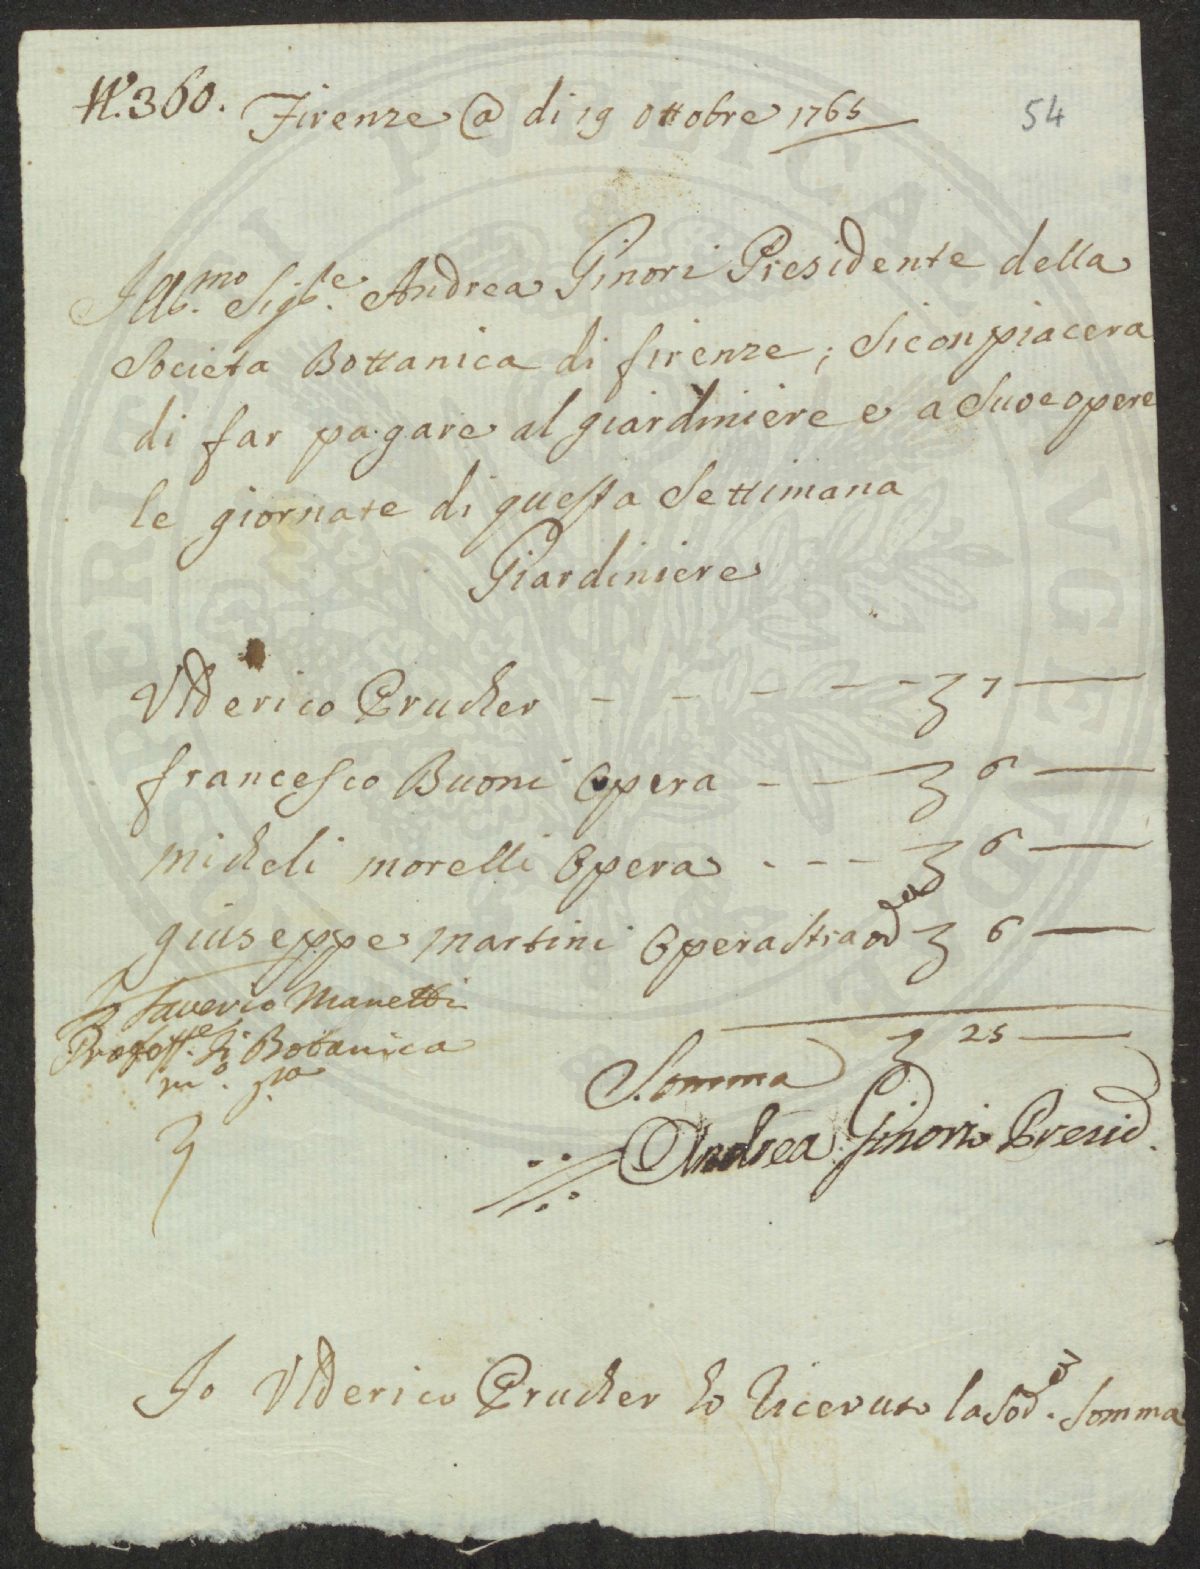 N.° 360. Firenze @ di 19 ottobre 1765
54
Ill.mo Sig.re Andrea Ginori Presidente della
Societa Bottanica di firenze; si conpiacera
di far pagare al giardiniere e a sue opere
le giornate di questa settimana
Giardiniere
Ulderico Prucher - - - - - 7 —
francesco Buoni Opera - - 6 —
micheli morelli Opera - - - 6 —
giuseppe martini Opera straord 6 —
Io Saverio Manetti
Profess.e di Botanica
m.o p.a
25 —
Somma
Andrea Ginori Presid.
Io Ulderico Prucher ho ricevuto la sod.a somma